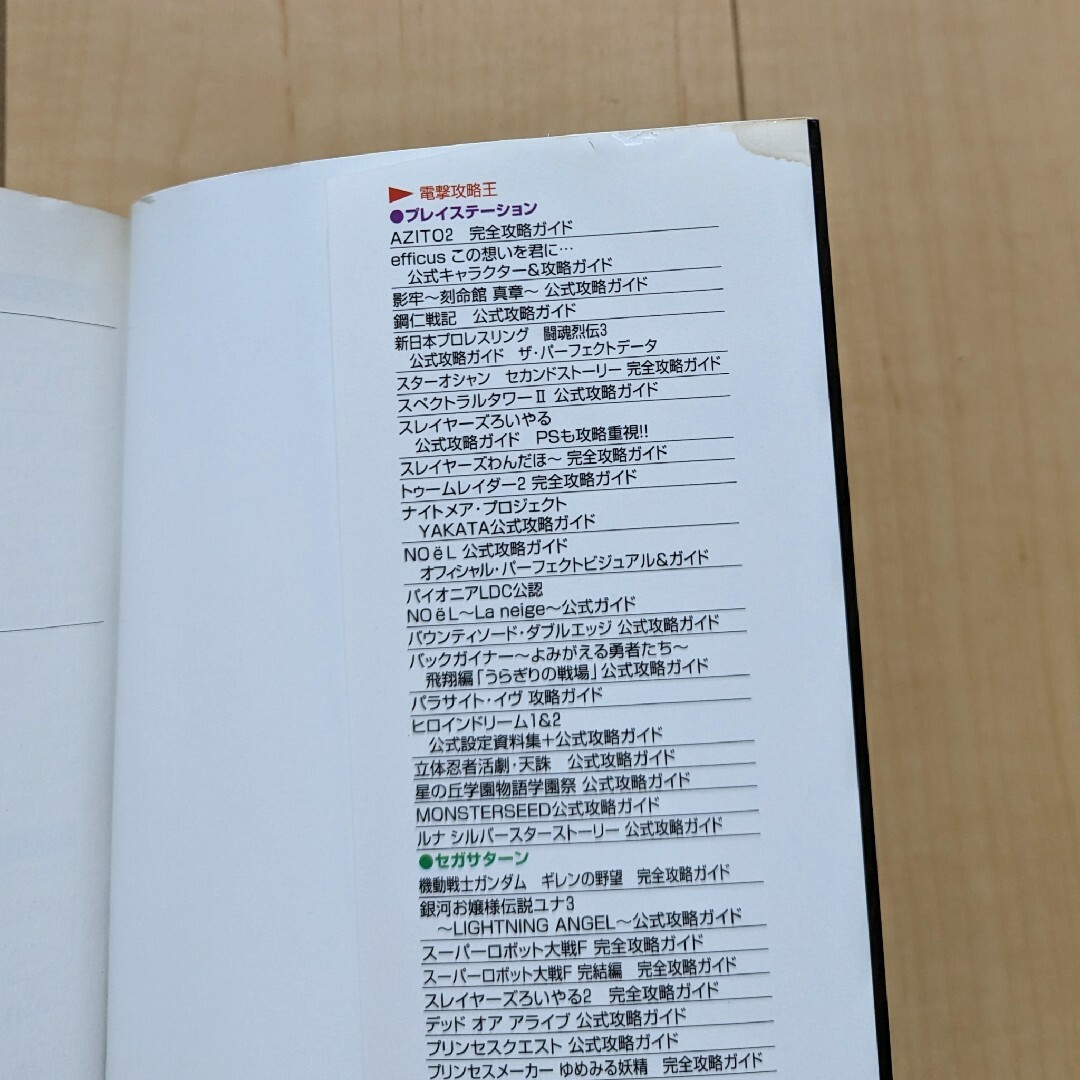 ▶ 電撃攻略王
●プレイステーション
AZITO2 完全攻略ガイド
efficus この想いを君に…
公式キャラクター&攻略ガイド
影牢〜刻命館 真章〜 公式攻略ガイド
鋼仁戦記 公式攻略ガイド
新日本プロレスリング 闘魂烈伝3
公式攻略ガイド ザ・パーフェクトデータ
スターオシャン セカンドストーリー 完全攻略ガイド
スペクトラルタワーⅡ 公式攻略ガイド
スレイヤーズろいやる
公式攻略ガイド PSも攻略重視!!
スレイヤーズわんだほ〜 完全攻略ガイド
トゥームレイダー2 完全攻略ガイド
ナイトメア・プロジェクト
YAKATA公式攻略ガイド
NOëL 公式攻略ガイド
オフィシャル・パーフェクトビジュアル&ガイド
パイオニアLDC公認
NOëL〜La neige〜公式ガイド
バウンティソード・ダブルエッジ 公式攻略ガイド
バックガイナー〜よみがえる勇者たち〜
飛翔編「うらぎりの戦場」公式攻略ガイド
パラサイト・イヴ 攻略ガイド
ヒロインドリーム1&2
公式設定資料集+公式攻略ガイド
立体忍者活劇・天誅 公式攻略ガイド
星の丘学園物語学園祭 公式攻略ガイド
MONSTERSEED公式攻略ガイド
ルナ シルバースターストーリー 公式攻略ガイド
●セガサターン
機動戦士ガンダム ギレンの野望 完全攻略ガイド
銀河お嬢様伝説ユナ3
〜LIGHTNING ANGEL〜公式攻略ガイド
スーパーロボット大戦F 完全攻略ガイド
スーパーロボット大戦F 完結編 完全攻略ガイド
スレイヤーズろいやる2 完全攻略ガイド
デッド オア アライブ 公式攻略ガイド
プリンセスクエスト 公式攻略ガイド
プリンセスメーカー ゆめみる妖精 完全攻略ガイド